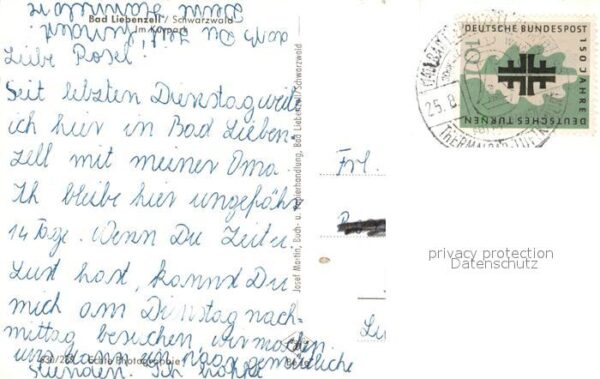 Bad Liebenzell / Schwarzwald
Im Kurpark
Liebe Rosel!
Seit letzten Dienstag weile
ich hier in Bad Lieben-
zell mit meiner Oma.
Ich bleibe hier ungefähr
14 Tage. Wenn Du Zeit u.
Lust hast, kannst Du
mich am Dienstag nach-
mittag besuchen
und dann ein paar gemütliche
Stunden. Ich hoffe
daß Du Zeit
Deine
Hannelore
Echte Photographie
Josef Martin, Buch- u. Papierhandlung, Bad Liebenzell/Schwarzwald
Frl.
DEUTSCHE BUNDESPOST
150 JAHRE
DEUTSCHES TURNEN
10
25. 8.
privacy protection
Datenschutz